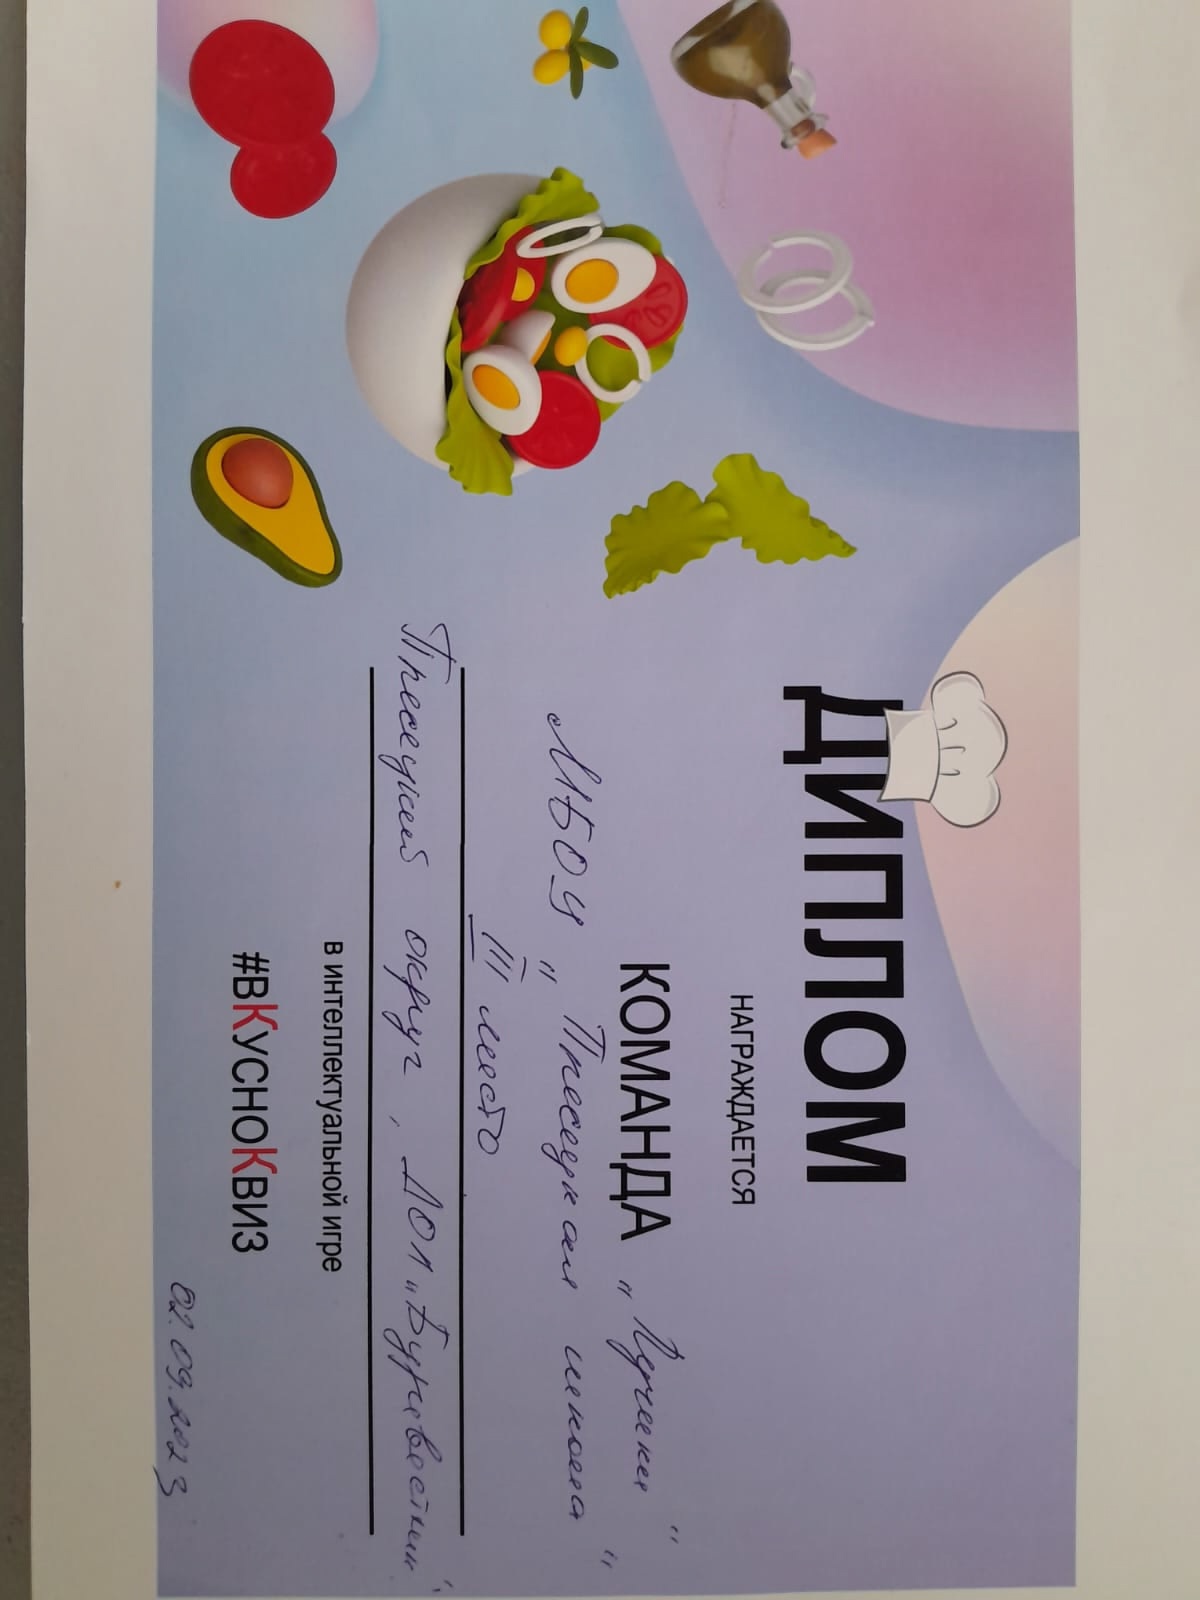 ДИПЛОМ
НАГРАЖДАЕТСЯ
КОМАНДА „Лучики"
МБОУ „Плесецкая школа"
III место
Плесецкий округ, ДОЛ „Буревестник"
в интеллектуальной игре
#ВКУСНОКВИЗ
02.09.2023